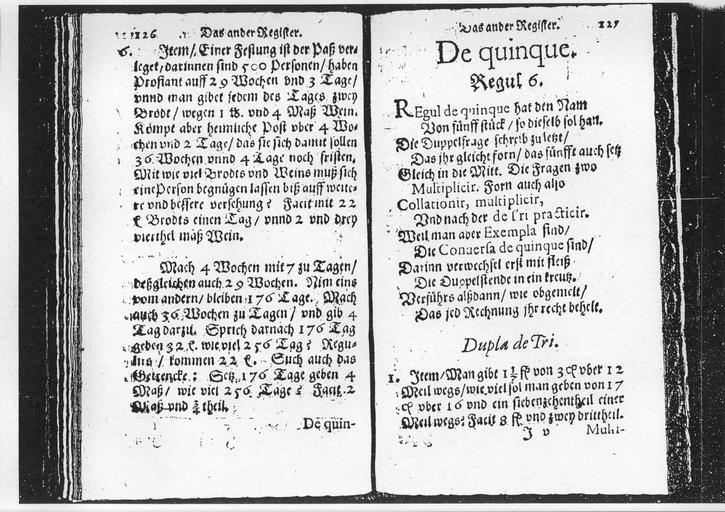 126 Das ander Register.
6. Item/ Einer Festung ist der Paß ver-
leget/ darinnen sind 500 Personen/ haben
Profiant auff 29 Wochen vnd 3 Tage/
vnnd man gibet jedem des Tages zwey
Brodt/ wegen 1 lb. vnd 4 Maß Wein.
Kömpt aber heimliche Post vber 4 Wo-
chen vnd 2 Tage/ das sie sich damit sollen
36 Wochen vnnd 4 Tage noch fristen.
Mit wie viel Brodts vnd Weins muß sich
eine Person begnügen lassen biß auff weite-
re vnd bessere versehung? Facit mit 22
Brodts einen Tag/ vnnd 2 vnd drey
viertheil mäß Wein.
Mach 4 Wochen mit 7 zu Tagen/
deßgleichen auch 29 Wochen. Nim eins
vom andern/ bleiben 176 Tage. Mach
auch 36 Wochen zu Tagen/ vnd gib 4
Tag darzu. Sprich darnach 176 Tag
geben 32 wie viel 256 Tag? Regu-
lirs/ kommen 22 Such auch das
Getrencke: Setz 176 Tage geben 4
Maß/ wie viel 256 Tage? Facit 2
Maß vnd ¾ theil.
De quin-
Das ander Register. 127
De quinque.
Regul 6.
REgul de quinque hat den Nam
Von fünff stück/ so dieselb sol han.
Die Duppelfrage schreib zu letzt/
Das jhr gleicht forn/ das fünfft auch setz
Gleich in die Mitt. Die Fragen zwo
Multiplicir. Forn auch also
Collationir, multiplicir,
Vnd nach der de Tri practicir.
Weil man aber Exempla find/
Die Conversa de quinque sind/
Darinn verwechsel erst mit fleiß
Die Duppelstende in ein kreutz.
Verführs alßdann/ wie obgemelt/
Das jed Rechnung jhr recht behelt.
Dupla de Tri.
1. Item/ Man gibt 1½ fl von 3 vber 12
Meil wegs/ wie viel sol man geben von 17
vber 16 vnd ein siebenzehentheil einer
Meil wegs? Facit 8 fl vnd zwey drittheil.
J v Multi-